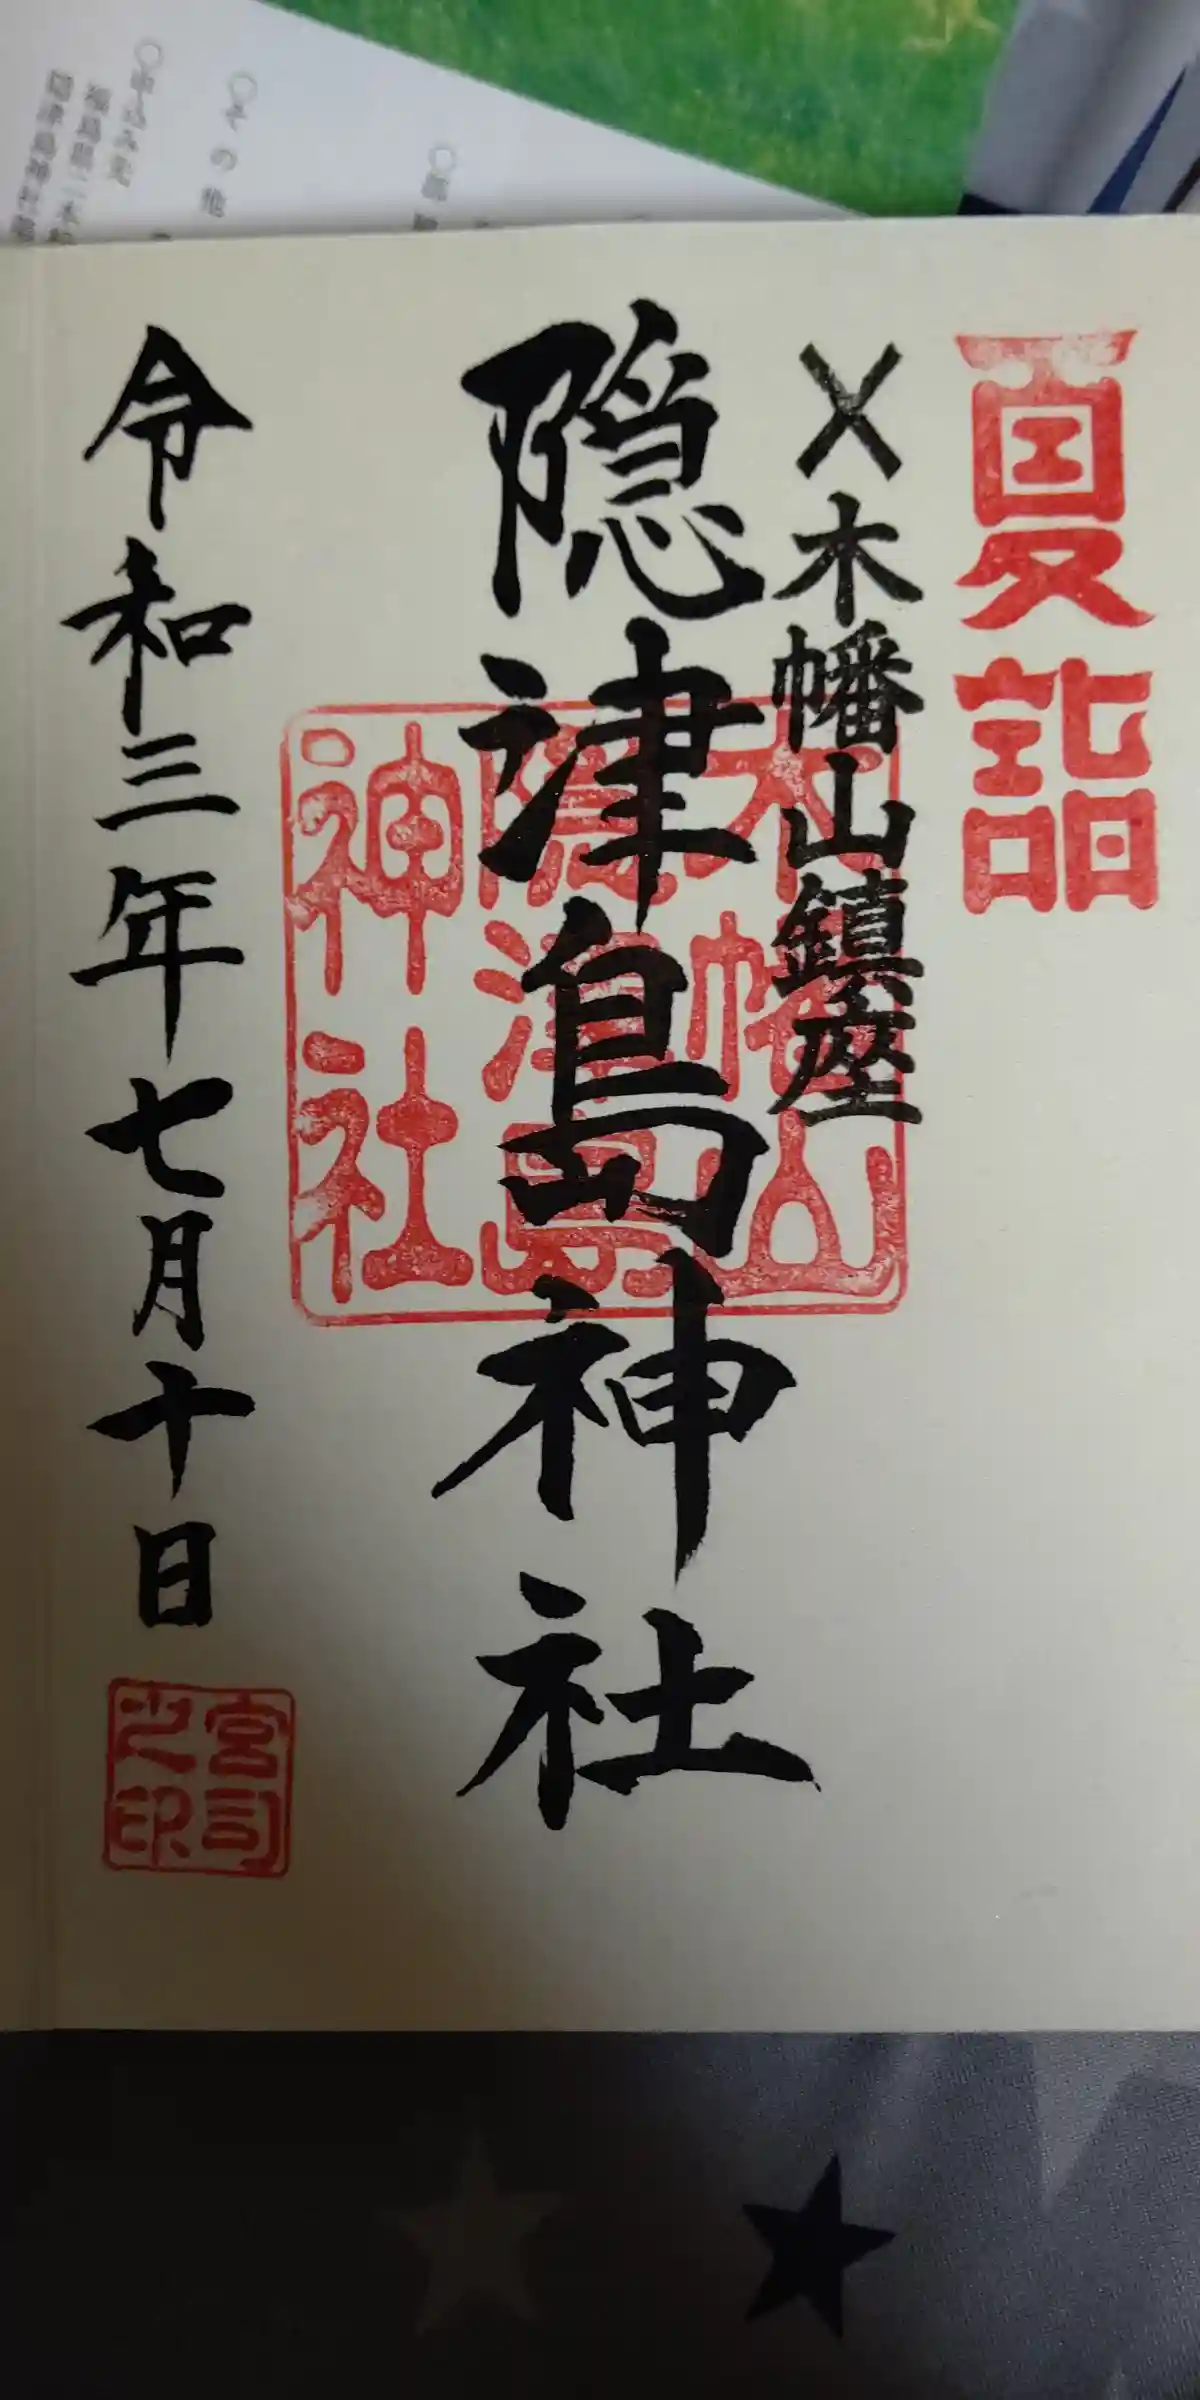 夏詣
〆木幡山鎮座
隠津島神社
木幡山
隠津島
神社
令和三年七月十日
宮司
之印
○その他